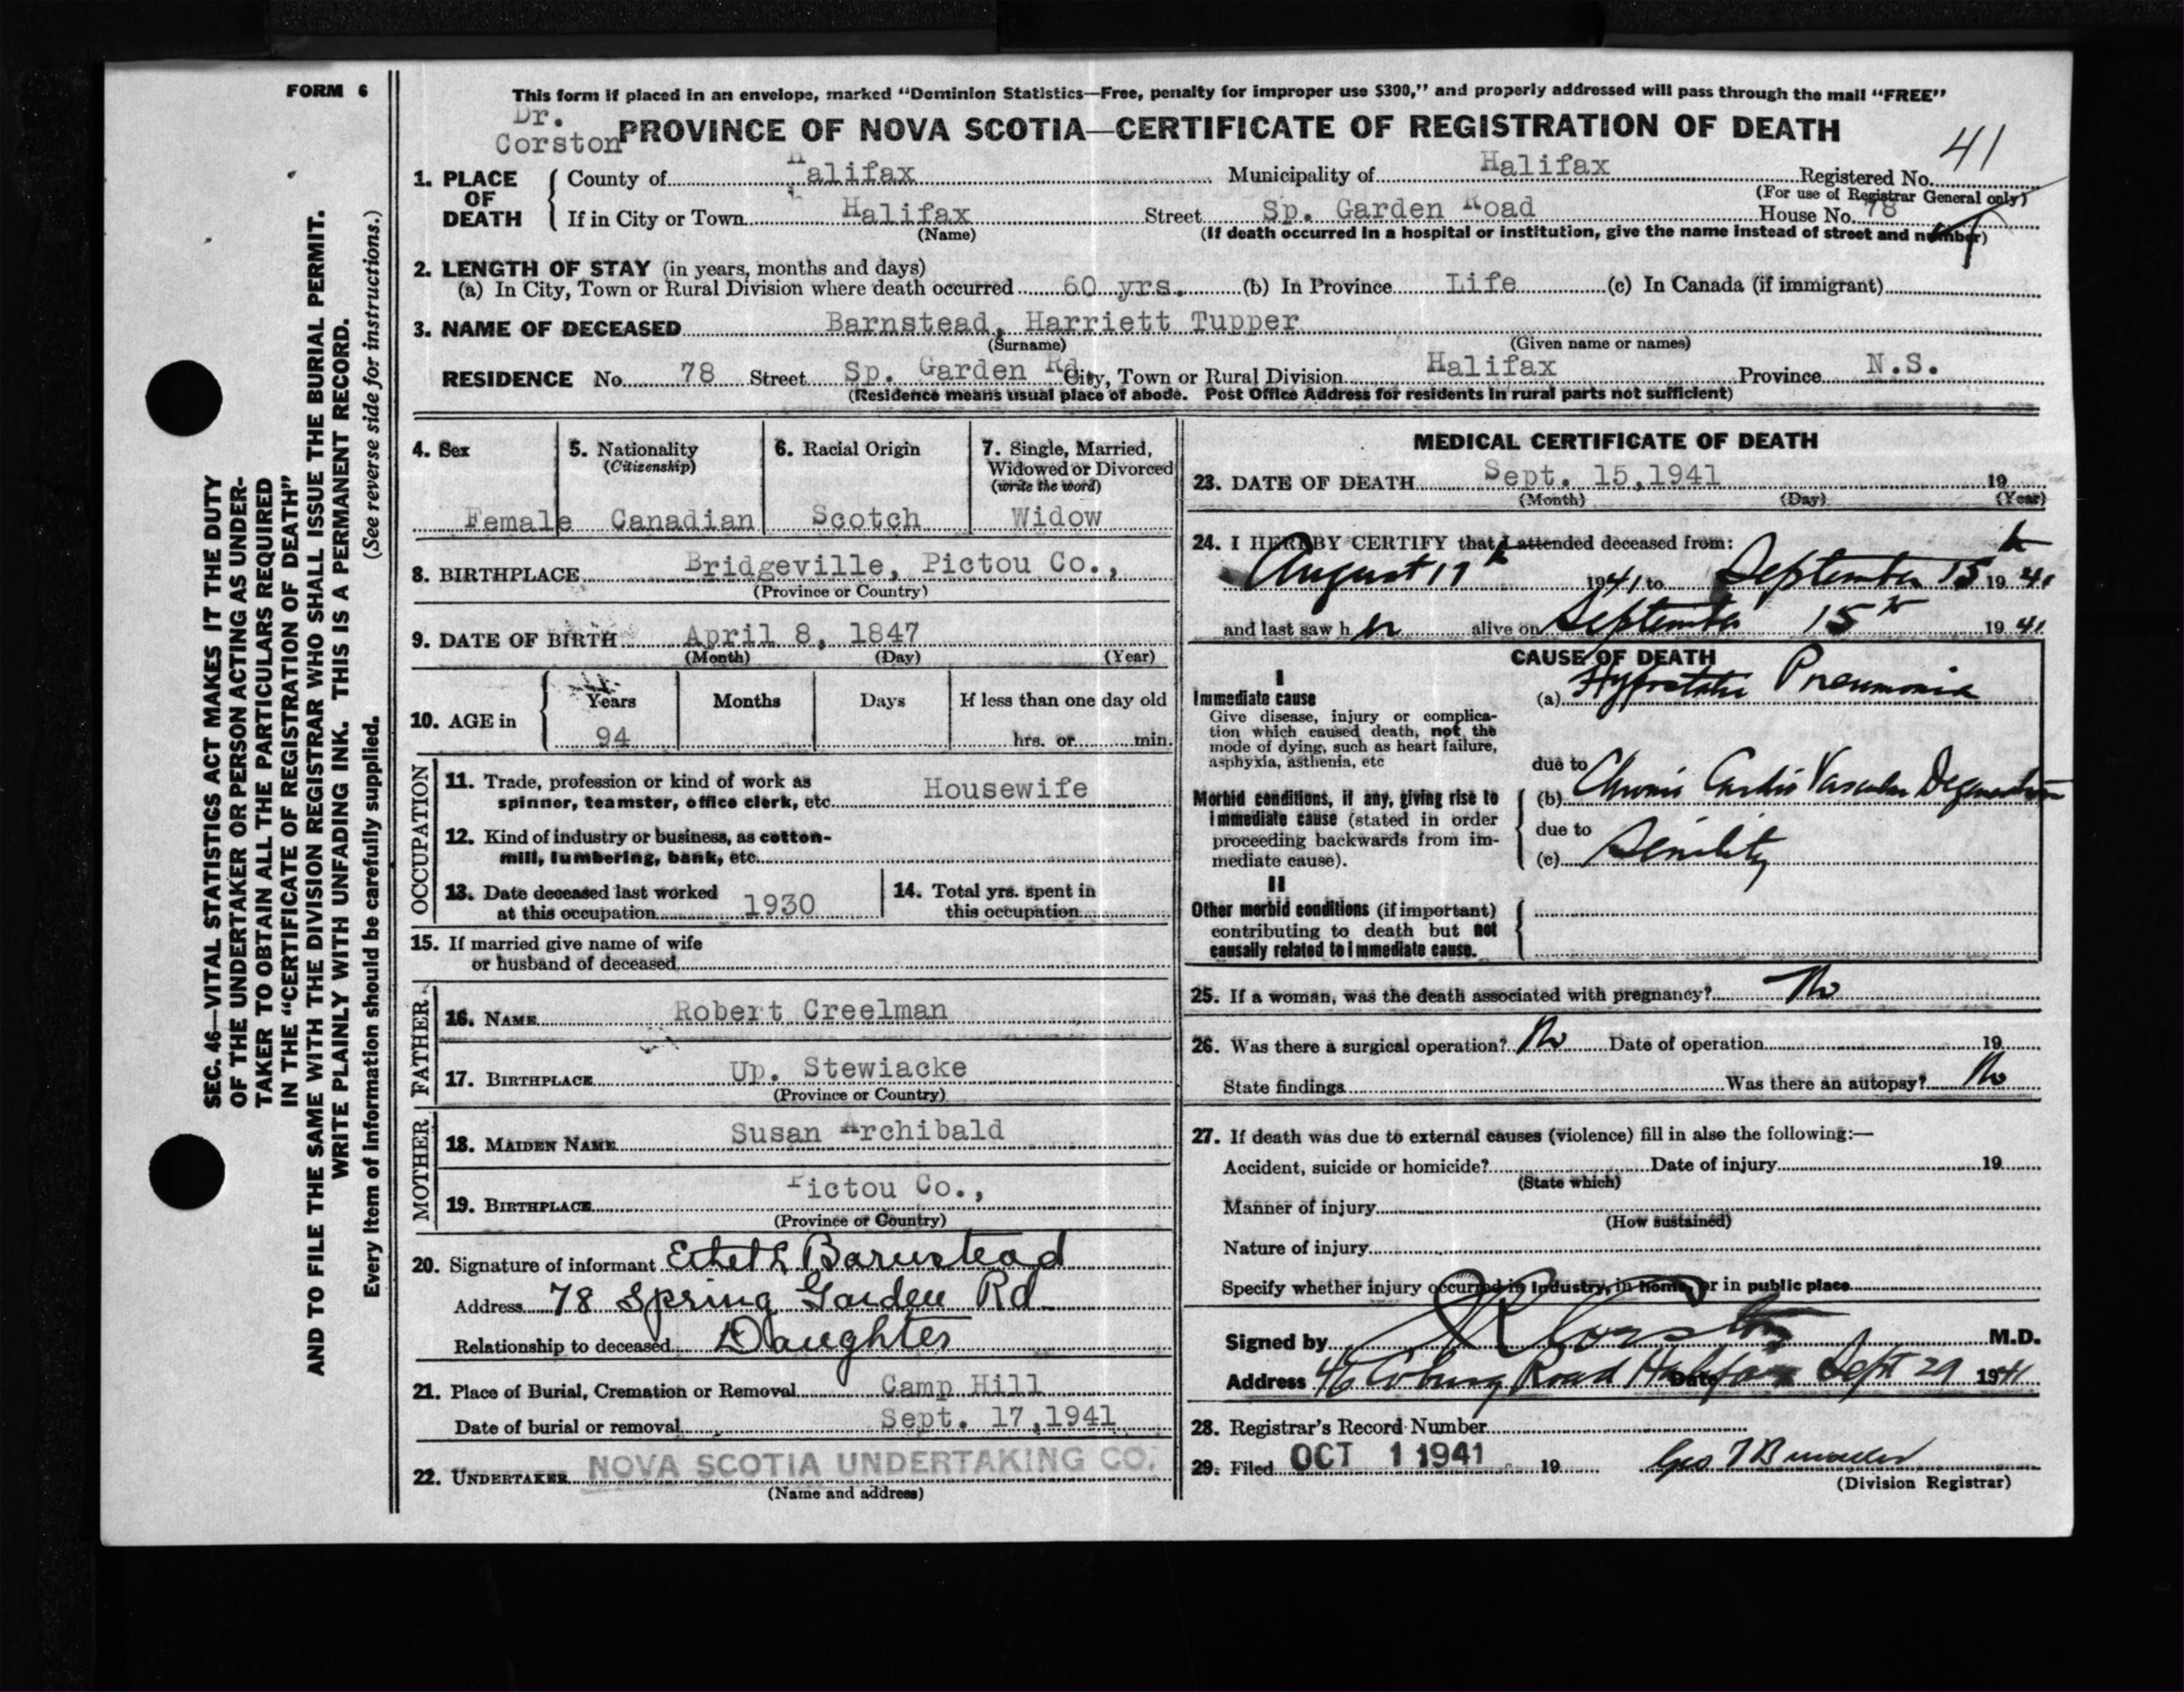 FORM 6
This form if placed in an envelope, marked “Dominion Statistics—Free, penalty for improper use $300,” and properly addressed will pass through the mail “FREE”
Dr.
Corston
PROVINCE OF NOVA SCOTIA—CERTIFICATE OF REGISTRATION OF DEATH
41
1. PLACE OF DEATH
County of Halifax Municipality of Halifax Registered No.
(For use of Registrar General only)
If in City or Town Halifax Street Sp. Garden Road House No. 78
(Name) (If death occurred in a hospital or institution, give the name instead of street and number)
2. LENGTH OF STAY (in years, months and days)
(a) In City, Town or Rural Division where death occurred 60 yrs. (b) In Province Life (c) In Canada (if immigrant)
3. NAME OF DECEASED Barnstead, Harriett Tupper
(Surname) (Given name or names)
RESIDENCE No. 78 Street Sp. Garden Rd City, Town or Rural Division Halifax Province N.S.
(Residence means usual place of abode. Post Office Address for residents in rural parts not sufficient)
4. Sex
Female
5. Nationality
(Citizenship)
Canadian
6. Racial Origin
Scotch
7. Single, Married,
Widowed or Divorced
(write the word)
Widow
8. BIRTHPLACE Bridgeville, Pictou Co.,
(Province or Country)
9. DATE OF BIRTH April 8, 1847
(Month) (Day) (Year)
10. AGE in
Years Months Days If less than one day old
94 hrs. or min.
OCCUPATION
11. Trade, profession or kind of work as
spinner, teamster, office clerk, etc. Housewife
12. Kind of industry or business, as cotton-
mill, lumbering, bank, etc.
13. Date deceased last worked
at this occupation 1930
14. Total yrs. spent in
this occupation
15. If married give name of wife
or husband of deceased
FATHER
16. NAME Robert Creelman
17. BIRTHPLACE Up. Stewiacke
(Province or Country)
MOTHER
18. MAIDEN NAME Susan Archibald
19. BIRTHPLACE Pictou Co.,
(Province or Country)
20. Signature of informant Barnstead
Address 78 Spring Garden Rd
Relationship to deceased Daughter
21. Place of Burial, Cremation or Removal Camp Hill
Date of burial or removal Sept. 17, 1941
22. UNDERTAKER NOVA SCOTIA UNDERTAKING CO.
(Name and address)
MEDICAL CERTIFICATE OF DEATH
23. DATE OF DEATH Sept. 15, 1941 19
(Month) (Day) (Year)
24. I HEREBY CERTIFY that I attended deceased from:
August 1941 to September 15th 1941
and last saw her alive on September 15th 1941
CAUSE OF DEATH
I
Immediate cause
Give disease, injury or complica-
tion which caused death, not the
mode of dying, such as heart failure,
asphyxia, asthenia, etc
(a) Hypostatic Pneumonia
due to
Morbid conditions, if any, giving rise to
immediate cause (stated in order
proceeding backwards from im-
mediate cause).
(b) Chronic Cardio Vascular Degeneration
due to
(c) Senility
II
Other morbid conditions (if important)
contributing to death but not
causally related to immediate cause.
25. If a woman, was the death associated with pregnancy? No
26. Was there a surgical operation? No Date of operation 19
State findings Was there an autopsy? No
27. If death was due to external causes (violence) fill in also the following:—
Accident, suicide or homicide? Date of injury 19
(State which)
Manner of injury
(How sustained)
Nature of injury
Specify whether injury occurred in industry, in home, or in public place
Signed by Corston M.D.
Address 46 Coburg Road Halifax Date Sept 29 1941
28. Registrar's Record Number
29. Filed OCT 1 1941 19
(Division Registrar)
SEC. 46—VITAL STATISTICS ACT MAKES IT THE DUTY
OF THE UNDERTAKER OR PERSON ACTING AS UNDER-
TAKER TO OBTAIN ALL THE PARTICULARS REQUIRED
IN THE “CERTIFICATE OF REGISTRATION OF DEATH”
AND TO FILE THE SAME WITH THE DIVISION REGISTRAR WHO SHALL ISSUE THE BURIAL PERMIT.
WRITE PLAINLY WITH UNFADING INK. THIS IS A PERMANENT RECORD.
Every item of information should be carefully supplied. (See reverse side for instructions.)